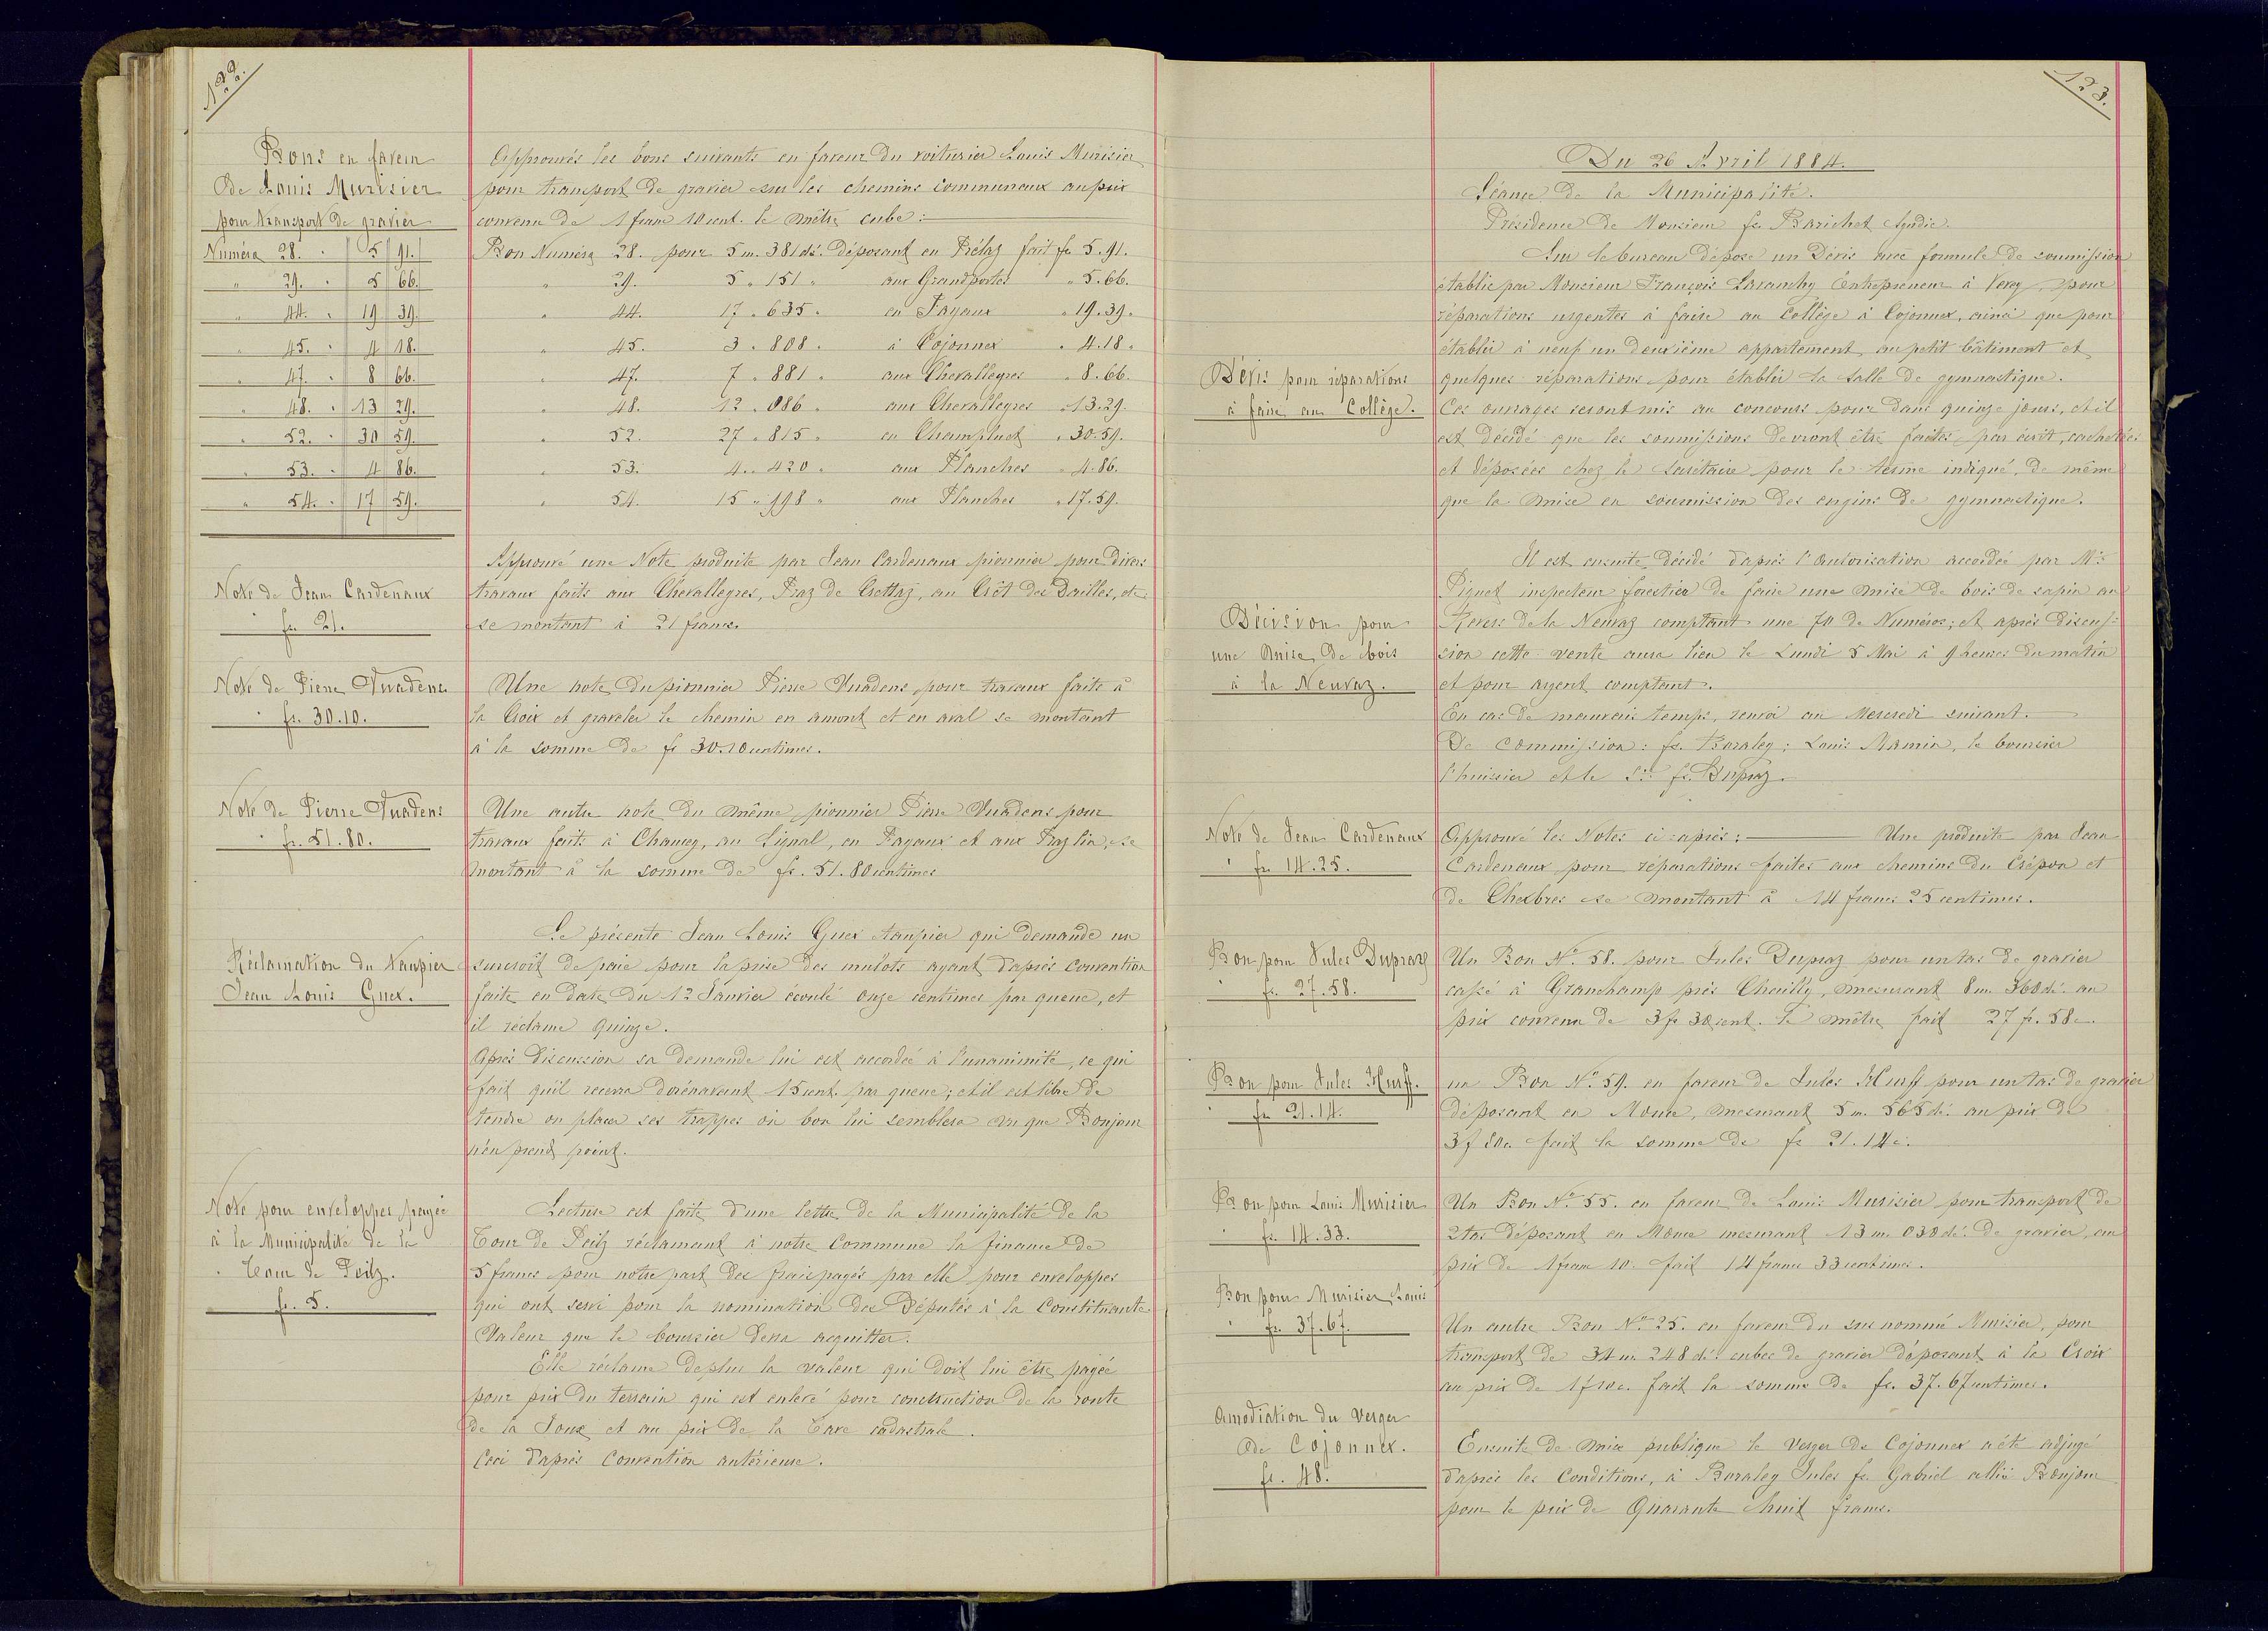 122.
Bons en faveur
de Louis Murisier
pour transport de gravier
Numéro 28. " 5 91.
" 29. " 5 66.
" 44. " 19 39.
" 45. " 4 18.
" 47. " 8 66.
" 48. " 13 29.
" 52. " 30 59.
" 53. " 4 86.
" 54. " 17 59.
Approuvés les bons suivants en faveur du voiturier Louis Murisier
pour transport de gravier sur les chemins communaux au prix
convenu de 1 franc 10 cent. le mètre cube :
Bon Numéro 28. pour 5 m. 381 d³. déposant en Prélaz fait fr. 5.91.
" 29. 5 " 151 " aux Grandportes " 5.66.
" 44. 17 " 635 " en Fayaux " 19.39.
" 45. 3 " 808 " à Cojonnex " 4.18.
" 47. 7 " 881 " aux Chevallegres " 8.66.
" 48. 12 " 086 " aux Chevallegres " 13.29.
" 52. 27 " 815 " en Champluet " 30.59.
" 53. 4 " 420 " aux Planches " 4.86.
" 54. 15 " 998 " aux Planches " 17.59.
Note de Jean Cardenaux
" fr. 21.
Approuvé une Note produite par Jean Cardenaux pionnier pour divers
travaux faits aux Chevallegres, Praz de Crettaz, au Crêt des Dailles, etc
se montant à 21 francs.
Note de Pierre Vuadens
" fr. 30.10.
Une note du pionnier Pierre Vuadens pour travaux faits à
la Croix et graveler le chemin en amont et en aval se montant
à la somme de fr 30.10 centimes.
Note de Pierre Vuadens
" fr. 51.80.
Une autre note du même pionnier Pierre Vuadens pour
travaux faits à Chaucey, au Signal, en Fayaux et aux Prazlin, se
montant à la somme de fr. 51.80 centimes
Réclamation du Taupier
Jean Louis Guex.
Se présente Jean Louis Guex taupier qui demande un
surcroît de paie pour la prise des mulots ayant d'après convention
faite en date du 12 Janvier écoulé onze centimes par queue, et
il réclame quinze.
Après discussion sa demande lui est accordée à l'unanimité, ce qui
fait qu'il recevra dorénavant 15 cent. par queue ; et il est libre de
tendre ou placer ses trappes où bon lui semblera vu que Bonjour
n'en prend point.
Note pour enveloppes payée
à la Municipalité de la
Tour de Peilz.
fr. 5.
Lecture est faite d'une lettre de la Municipalité de la
Tour de Peilz réclamant à notre Commune la finance de
5 francs pour notre part des frais payés par elle pour enveloppes
qui ont servi pour la nomination des Députés à la Constituante
Valeur que le boursier devra acquitter.
Elle réclame de plus la valeur qui doit lui être payée
pour prix du terrain qui est enlevé pour construction de la route
de la Joux et au prix de la Taxe cadastrale.
Ceci d'après Convention antérieure.
123.
Du 26 Avril 1884.
Séance de la Municipalité.
Présidence de Monsieur fs. Barichet Syndic.
Sur le bureau dépose un Devis avec formule de soumission
établie par Monsieur François Laranchy Entrepreneur à Vevey, pour
réparations urgentes à faire au Collège à Cojonnex, ainsi que pour
établir à neuf un deuxième appartement au petit bâtiment et
Dévis pour réparations
à faire au Collège.
quelques réparations pour établir la salle de gymnastique.
Ces ouvrages seront mis au concours pour dans quinze jours, et il
est décidé que les soumissions devront être faites par écrit, cachetées
et déposées chez le Secrétaire pour le terme indiqué, de même
que la mise en soumission des engins de gymnastique.
Décision pour
une mise de bois
à la Neuvaz.
Il est ensuite décidé d'après l'autorisation accordée par Mr.
Piguet inspecteur forestier de faire une mise de bois de sapin au
Revers de la Neuvaz comptant une 70 de Numéros ; et après discus-
sion cette vente aura lieu le Lundi 5 Mai à 9 heures du matin
et pour argent comptant.
En cas de mauvais temps, renvoi au Mercredi suivant.
De commission : fs. Baraley ; Louis Mamin, le boursier
l'huissier et le Sr. fs. Dupraz.
Note de Jean Cardenaux
" fr. 14.25.
Approuvé les Notes ci-après : Une produite par Jean
Cardenaux pour réparations faites aux chemins du Crépon et
de Chexbres se montant à 14 francs 25 centimes.
Bon pour Jules Dupraz
" fr. 27.58.
Un Bon No. 58. pour Jules Dupraz pour un tas de gravier
cassé à Granchamp près Cheuilly, mesurant 8 m. 360 d³. au
prix convenu de 3 fr 30 cent. le mètre fait 27 fr. 58 c.
Bon pour Jules Hurff.
" fr 21.14.
un Bon No. 59. en faveur de Jules Hurff pour un tas de gravier
déposant en Mouce, mesurant 5 m. 565 d³. au prix de
3 f 80 c fait la somme de fr 21.14 c.
Bon pour Louis Murisier
" fr. 14.33.
Un Bon No. 55. en faveur de Louis Murisier pour transport de
2 tas déposant en Mouce mesurant 13 m. 030 d³. de gravier, au
prix de 1 franc 10. fait 14 francs 33 centimes.
Bon pour Murisier Louis
" fr. 37.67.
Un autre Bon No. 25. en faveur du sus nommé Murisier, pour
transport de 34 m. 248 d³. cubes de gravier déposant à la Croix
au prix de 1 f 10 c. fait la somme de fr. 37.67 centimes.
Amodiation du verger
de Cojonnex.
fr. 48.
Ensuite de mise publique le Verger de Cojonnex a été adjugé
d'après les Conditions, à Baraley Jules fs. Gabriel allié Bonjour
pour le prix de Quarante huit francs.